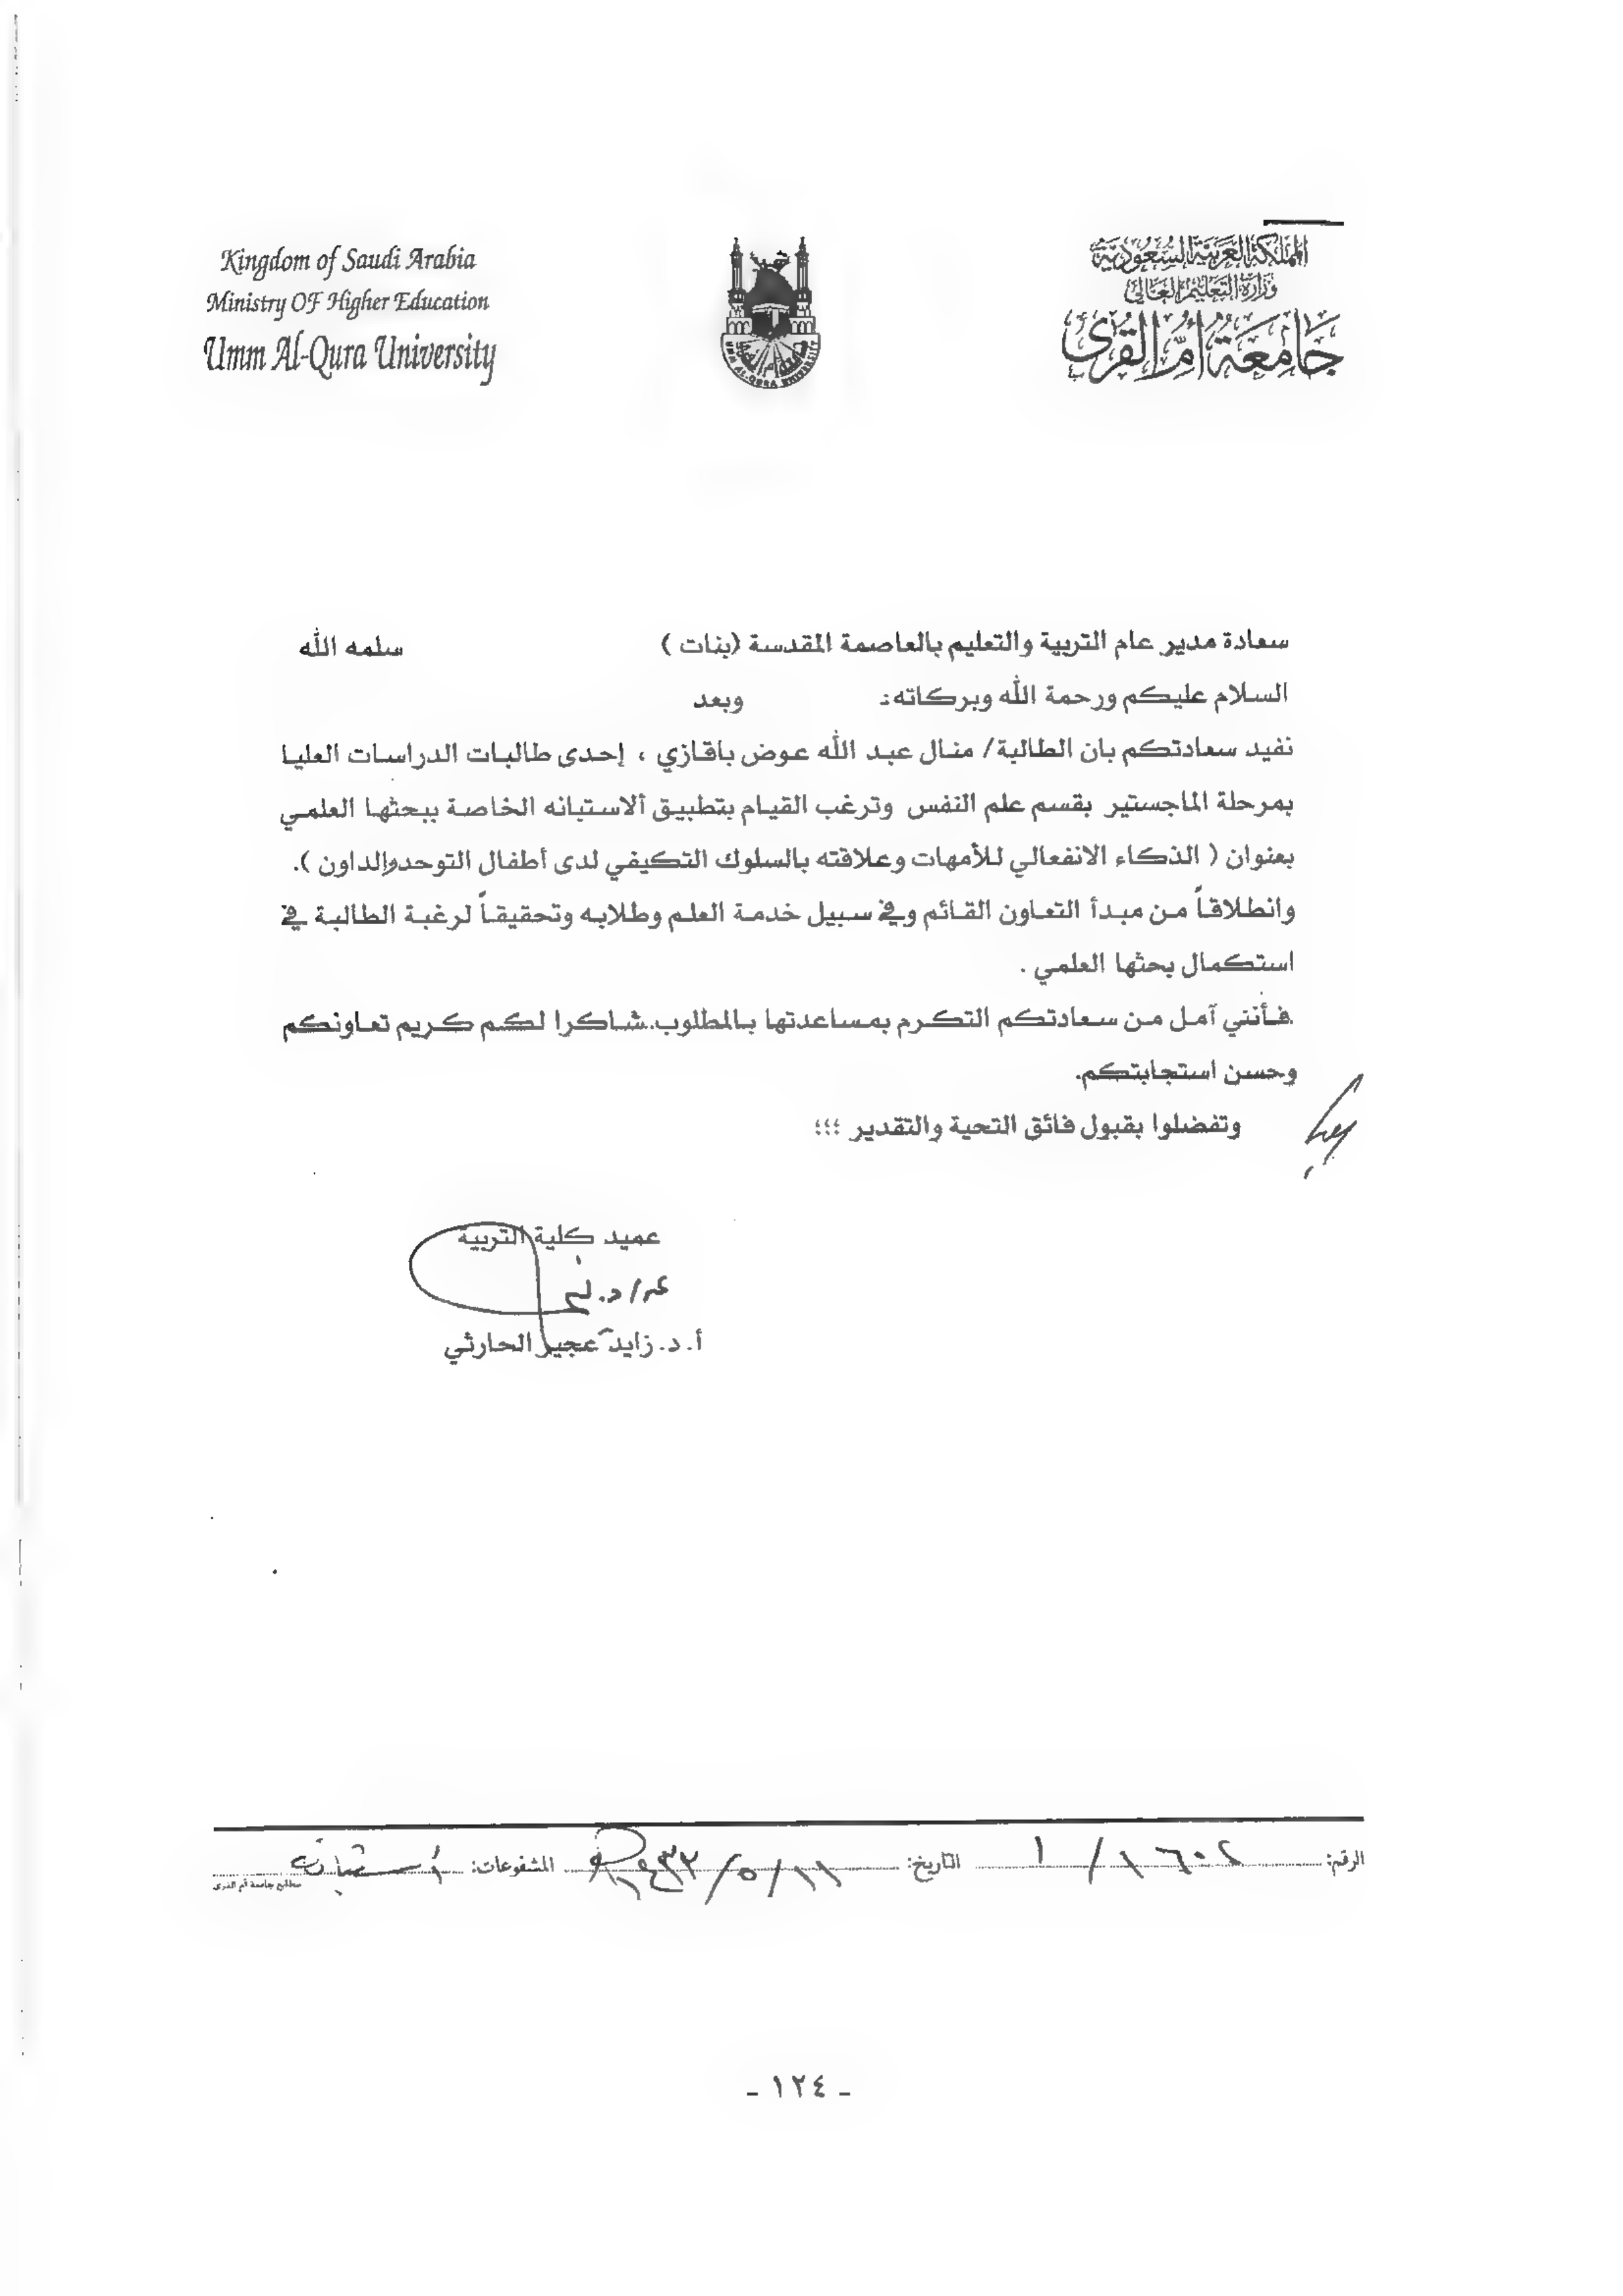 Kingdom of Saudi Arabia
Ministry OF Higher Education
Umm Al-Qura University
المملكة العربية السعودية
وزارة التعليم العالي
جامعة أم القرى
سعادة مدير عام التربية والتعليم بالعاصمة المقدسة (بنات ) سلمه الله
السلام عليكم ورحمة الله وبركاته: وبعد
نفيد سعادتكم بان الطالبة/ منال عبد الله عوض باقازي ، إحدى طالبات الدراسات العليا
بمرحلة الماجستير بقسم علم النفس وترغب القيام بتطبيق ألاستبانه الخاصة ببحثها العلمي
بعنوان ( الذكاء الانفعالي للأمهات وعلاقته بالسلوك التكيفي لدى أطفال التوحد والداون ).
وانطلاقاً من مبدأ التعاون القائم وفي سبيل خدمة العلم وطلابه وتحقيقاً لرغبة الطالبة في
استكمال بحثها العلمي .
فأنني آمل من سعادتكم التكرم بمساعدتها بالمطلوب.شاكرا لكم كريم تعاونكم
وحسن استجابتكم.
وتفضلوا بقبول فائق التحية والتقدير ؛؛؛
عميد كلية التربية
أ. د. زايد عجير الحارثي
الرقم: التاريخ: ١١/٥/١٤٣٢ المشفوعات:
مطابع جامعة أم القرى
- ١٢٤ -